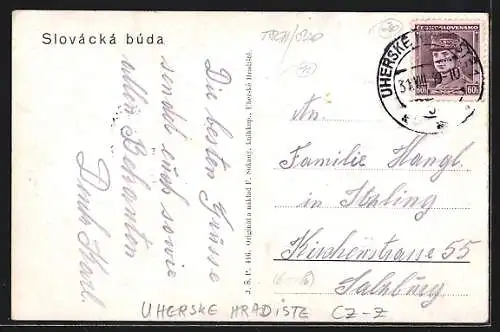 Slovácká búda
Die besten Grüsse
sendet euch sowie
allen Bekannten
Karl.
J. Š. P. 416. Originál a náklad F. Nákaný, knihkup., Uherské Hradiště.
TSCH/
ČESKOSLOVENSKO
60h
UHERSKÉ
An.
Familie Hangl.
in Itzling
Kirchenstrasse 55
Salzburg
UHERSKE HRADISTE CZ-Z